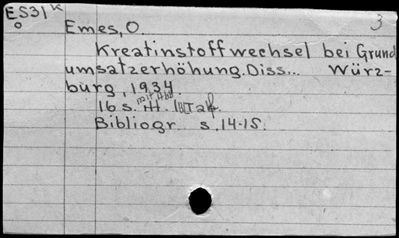 ES31 K
o
3
Emes, O.
Kreatinstoffwechsel bei Grund
umsatzerhöhung. Diss... Würz-
burg, 1934.
16 s.
Bibliogr s. 14-15.